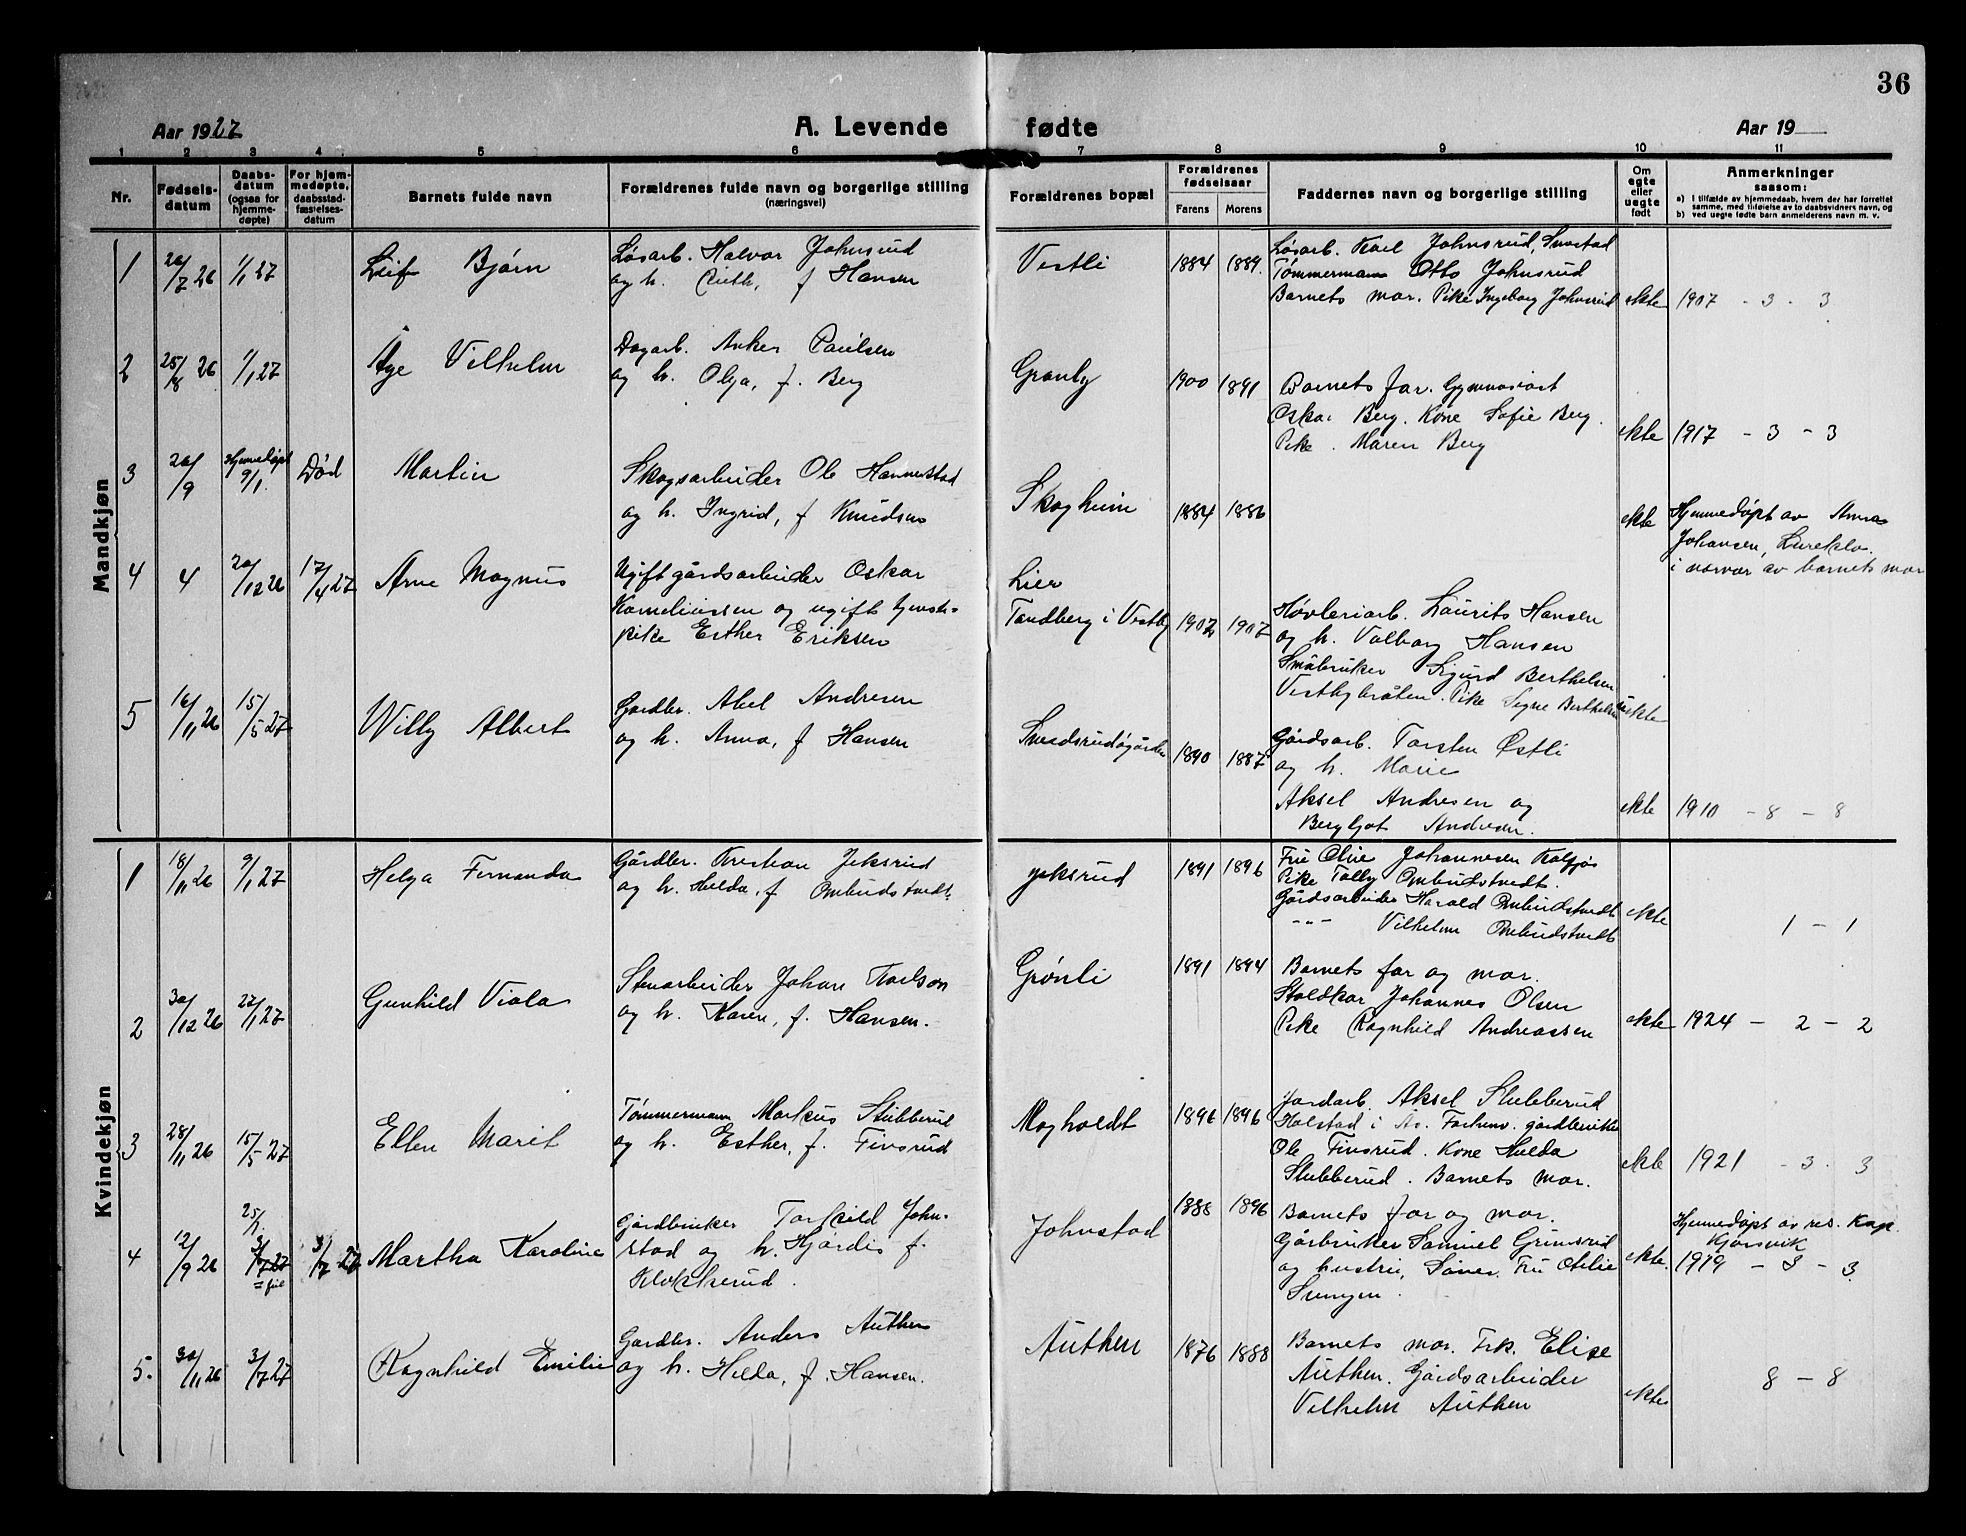 36
Aar 1927
A. Levende fødte
Aar 19
1 2 3 4 5 6 7 8 9 10 11
Nr.
Fødselsdatum
Daabsdatum (ogsaa for hjemmedøpte)
For hjemmedøpte, daabsstadfæstelsesdatum
Barnets fulde navn
Forældrenes fulde navn og borgerlige stilling
(næringsvei)
Forældrenes bopæl
Forældrenes fødselsaar
Farens Morens
Faddernes navn og borgerlige stilling
Om egte eller uegte født
Anmerkninger
saasom:
a) I tilfælde av hjemmedaab, hvem der har forrettet samme, med tilføielse av to daabsvidners navn, og
b) ved uegte fødte barn anmelderens navn m. v.
Mandkjøn
1 20/7 26 1/1 27 Leif Bjørn
Løsarb. Halvor Johnsrud
og h. Ruth, f Hansen
Vestli 1884 1889.
Løsarb. Karl Johnsrud,
Tømmermann Otto Johnsrud
Barnets mor. Pike Ingeborg Johnsrud
ekte 1907 - 3 - 3
2 25/8 26 1/1 27 Åge Vilhelm
Dagarb. Anker Paulsen
og h. Olga, f. Berg
Granly 1900 1891
Barnets far. Gymnasiast
Oskar Berg. Kone Sofie Berg.
Pike. Maren Berg
ekte 1917 - 3 - 3
3 20/9 Hjemmedøpt 9/1. Død Martin
Skogsarbeider Ole Hannestad
og h. Ingrid, f Knudsen
Skogheim 1884 1886
ekte Hjemmedøpt av Anna
Johansen,
i nærvær av barnets mor
4 4 20/12 26 17/4 27 Arne Magnus
Ugift gårdsarbeider Oskar
Korneliussen og ugift tjeneste-
pike Esther Eriksen
Lier
Tandberg i Vestby 1902 1907
Høvleriarb. Laurits Hansen
og h. Valborg Hansen
Småbruker Sigurd Berthelsen
Vestbybråten. Pike Signe Berthelsen uekte
5 16/11 26 15/5 27 Willy Albert
Gårdbr. Abel Andresen
og h. Anna, f Hansen
1890 1887
Gårdsarb. Torsten Østli
og h. Marie
Aksel Andresen og
Bergljot Andresen.
ekte 1910 - 8 - 8
Kvindekjøn
1 18/11 26 9/1 27 Helga Fernanda
Gårdbr. Kristian Jeksrud
og h. Hulda, f Ombudstvedt
Jeksrud 1891 1896
Fru Olive Johannesen
Pike Tolly Ombudstvedt.
Gårdsarbeider Harald Ombudstvedt
-"- Vilhelm Ombudstvedt
ekte 1 - 1
2 30/12 26 27/1 27 Gunhild Viola
Stenarbeider Johan Karlson
og h. Karen, f. Hansen.
Grønli 1891 1894
Barnets far og mor.
Staldkar Johannes Olsen
Pike Ragnhild Andreassen
ekte 1924 - 2 - 2
3 28/11 26 15/5 27 Ellen Marit
Tømmermann Markus Stubberud
og h. Esther, f. Finsrud
Mogholdt 1896 1896
Jordarb. Aksel Stubberud
Holstad i Ås. Forhenv. gårdbruker
Ole Finsrud. Kone Hulda
Stubberud. Barnets mor.
ekte 1921 - 3 - 3
4 12/9 26 25/1. 3/7 27 =feil 3/7 27 Martha Karoline
Gårdbruker Torkild John-
stad og h. Hjørdis f.
Klokkerud.
Johnstad 1888 1896
Barnets far og mor.
Gårbruker Samuel Grimsrud
og hustru, Fru Otilie
ekte. Hjemmedøpt av res. Kap.
Kjørsvik
1919 - 3 - 3
5. 30/11 26 3/7 27 Ragnhild Emilie
Gårdbr. Anders Authen
og h. Hulda, f. Hansen.
Authen 1876 1888
Barnets mor. Frk. Elise
Authen. Gårdsarbeider
Vilhelm Authen
ekte 8 - 8